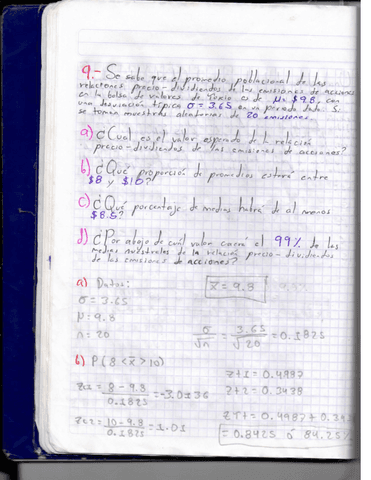 9.- Se sabe que el promedio poblacional de las
relaciones precio-dividendos de las emisiones de acciones
en la bolsa de valores de es de μ= $9.8, con
una desviación típica σ = 3.65 en un periodo dado. Si
se toman muestras aleatorias de 20 emisiones.
a) ¿Cual es el valor esperado de la relación
precio-dividendos de las emisiones de acciones?
b) ¿Qué proporción de promedios estará entre
$8 y $10?
c) ¿Qué porcentaje de medias habrá de al menos
$8.5?
d) ¿Por abajo de cuál valor caerá el 99% de las
medias muestrales de la relación precio-dividendos
de las emisiones de acciones?
a) Datos:
x̄ = 9.8
σ = 3.65
μ = 9.8
n = 20
σ/√n = 3.65/√20 = 0.1825
b) P(8 < x̄ > 10)
z1 = 8 - 9.8 / 0.1825 = -3.0136
z2 = 10 - 9.8 / 0.1825 = 1.01
z1 = 0.4987
z2 = 0.3438
zT = 0.4987 + 0.343
= 0.8425 ó 84.25%